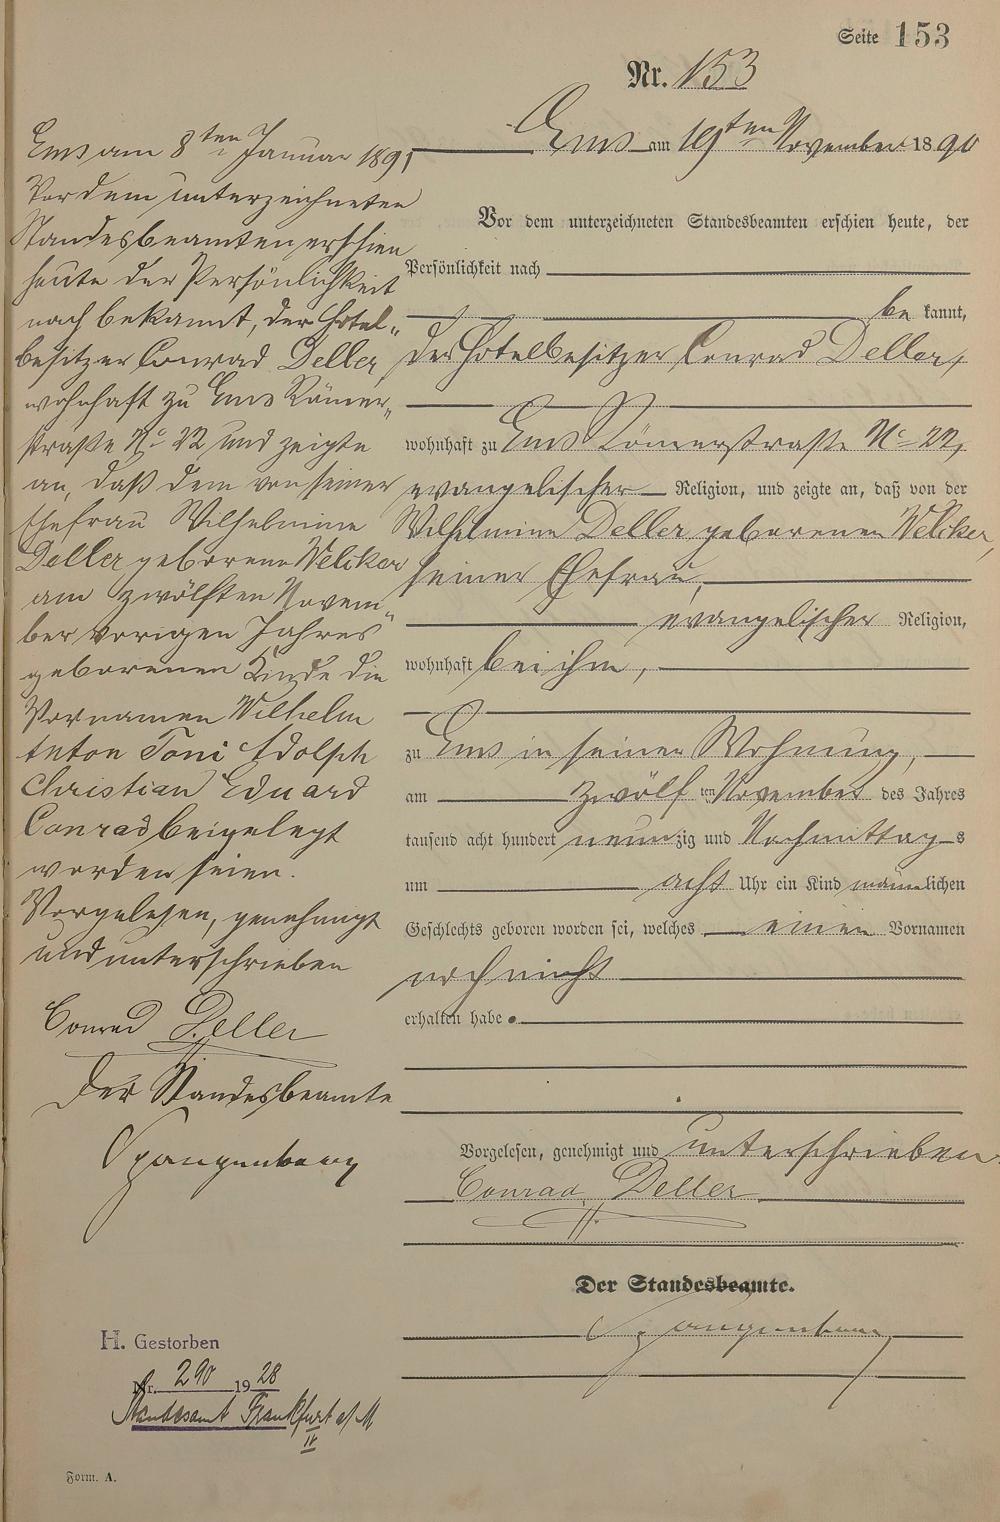 Seite 153
Nr. 153
Ems am 19ten November 1890
Vor dem unterzeichneten Standesbeamten erschien heute, der
Persönlichkeit nach
be kannt,
der Hotelbesitzer Conrad Deller,
wohnhaft zu Ems Römerstraße No 22,
evangelischer Religion, und zeigte an, daß von der
Wilhelmine Deller geborenen Welcker,
seiner Ehefrau,
evangelischer Religion,
wohnhaft bei ihm,
zu Ems in seiner Wohnung,
am zwölf ten November des Jahres
tausend acht hundert neunzig und Nachmittags
um acht Uhr ein Kind männlichen
Geschlechts geboren worden sei, welches einen Vornamen
noch nicht
erhalten habe.
Vorgelesen, genehmigt und unterschrieben
Conrad Deller
Der Standesbeamte.
Spangenberg
Ems am 8ten Januar 1891
Vor dem unterzeichneten
Standesbeamten erschien
heute der Persönlichkeit
nach bekannt, der Hotel-
besitzer Conrad Deller,
wohnhaft zu Ems Römer-
straße No 22 und zeigte
an, daß dem von seiner
Ehefrau Wilhelmine
Deller geborene Welcker
am zwölften Novem-
ber vorigen Jahres
geborenen Kinde die
Vornamen Wilhelm
Anton Toni Adolph
Christian Eduard
Conrad beigelegt
worden seien.
Vorgelesen, genehmigt
und unterschrieben
Conrad Deller
Der Standesbeamte
Spangenberg
H. Gestorben
Nr. 290 1928
Standesamt Frankfurt a/M
IV
Form. A.